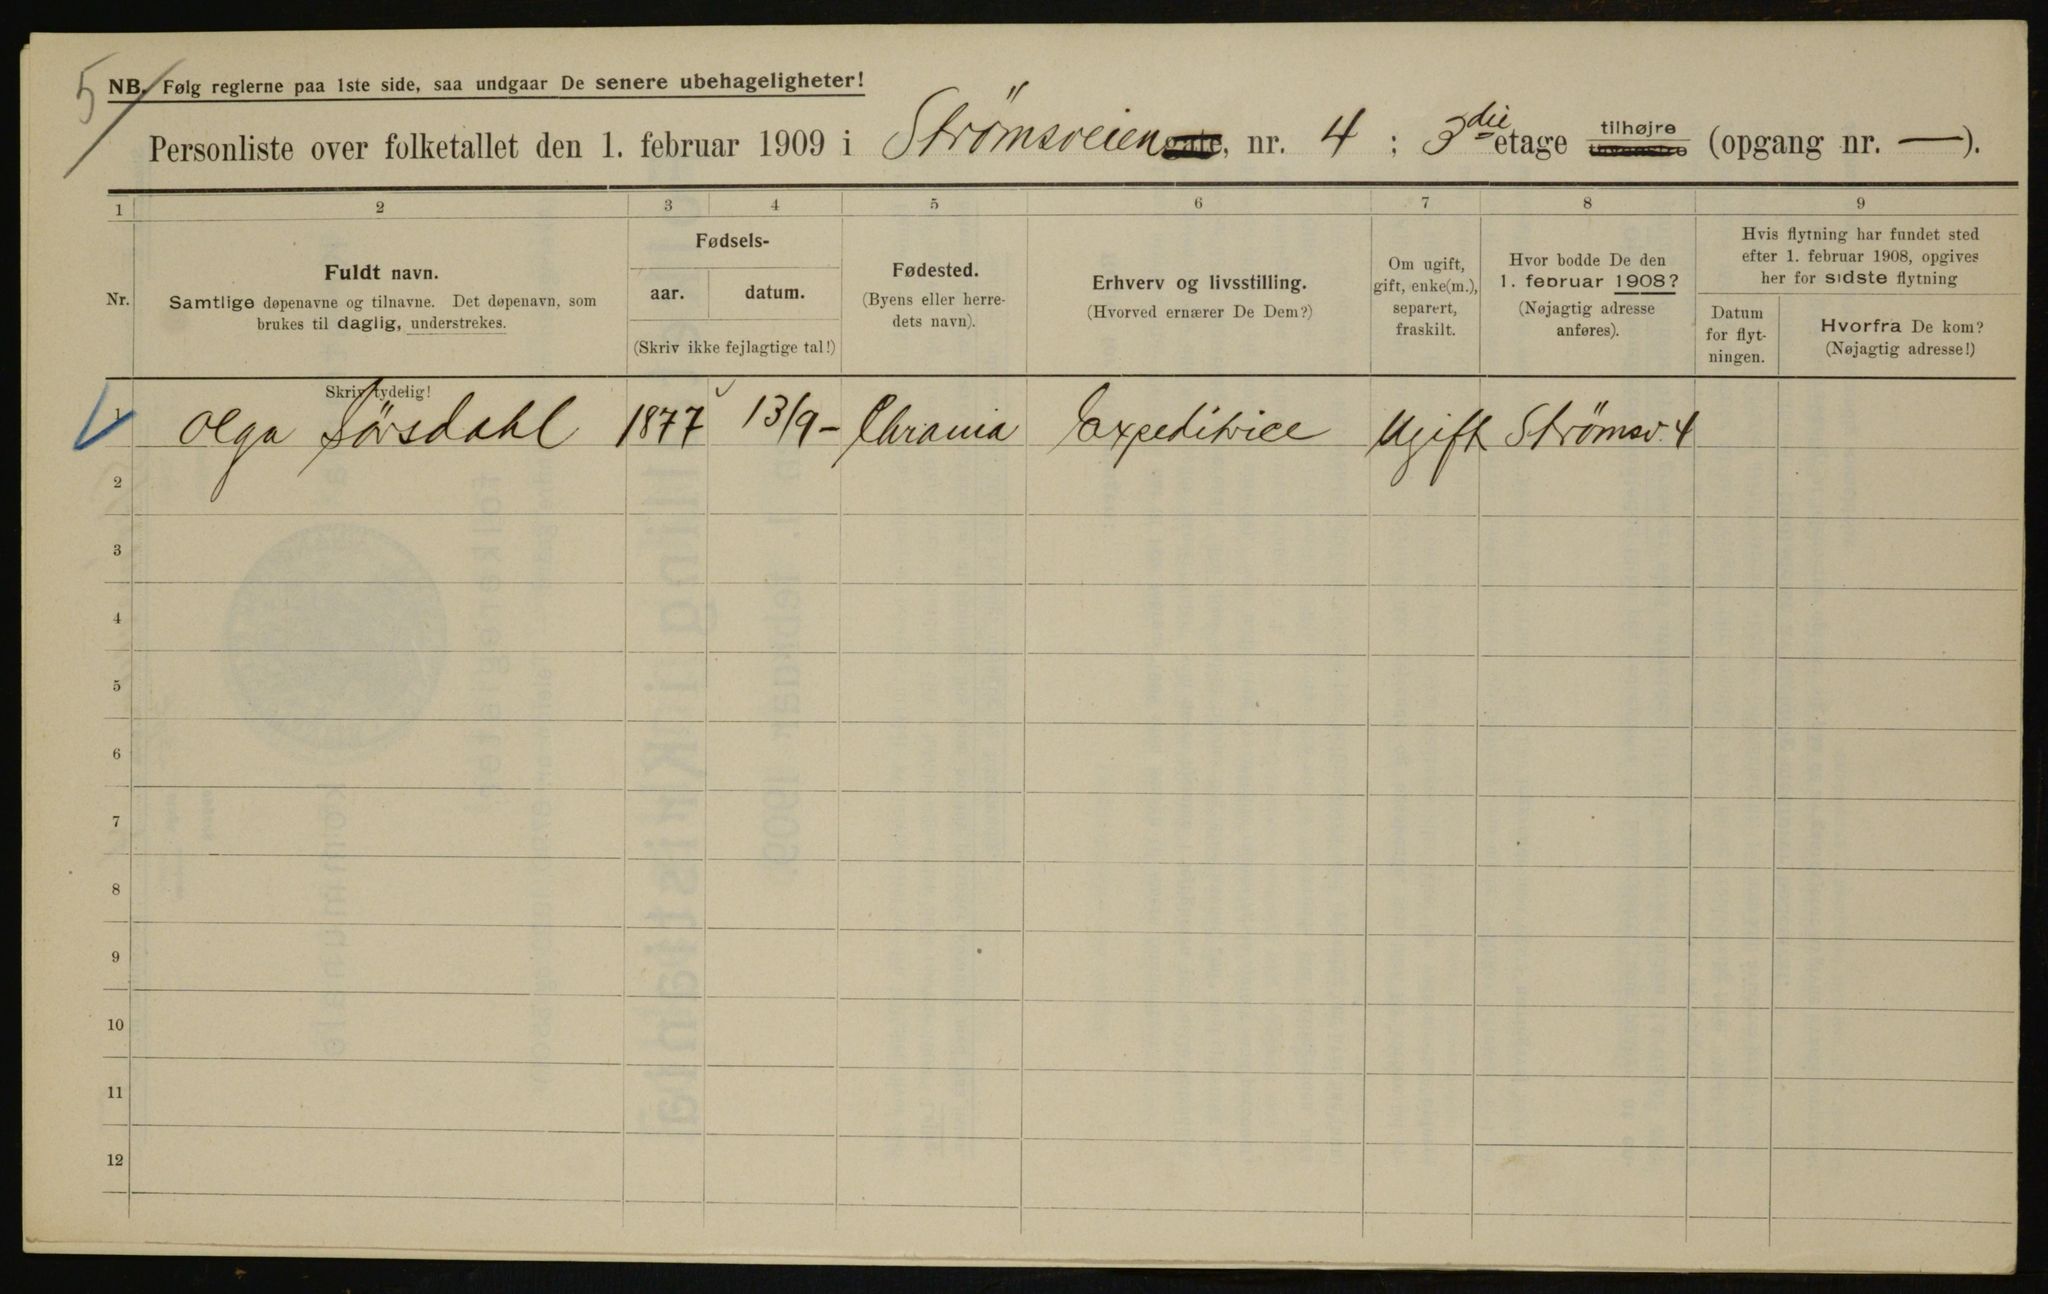 5/
NB. Følg reglerne paa 1ste side, saa undgaar De senere ubehageligheter!
Personliste over folketallet den 1. februar 1909 i Strömsveien gate, nr. 4 ; 3die etage tilhøjre tilvenstre (opgang nr. —).
1 2 3 4 5 6 7 8 9
Nr.
Fuldt navn.
Samtlige døpenavne og tilnavne. Det døpenavn, som
brukes til daglig, understrekes.
Fødsels-
aar. datum.
(Skriv ikke fejlagtige tal!)
Fødested.
(Byens eller herre-
dets navn).
Erhverv og livsstilling.
(Hvorved ernærer De Dem?)
Om ugift,
gift, enke(m.),
separert,
fraskilt.
Hvor bodde De den
1. februar 1908?
(Nøjagtig adresse
anføres).
Hvis flytning har fundet sted
efter 1. februar 1908, opgives
her for sidste flytning
Datum
for flyt-
ningen.
Hvorfra De kom?
(Nøjagtig adresse!)
Skriv tydelig!
1 Olga Sörsdahl 1877 13/9 – Chrania Expeditrice Ugift Strömsv. 4
2
3
4
5
6
7
8
9
10
11
12